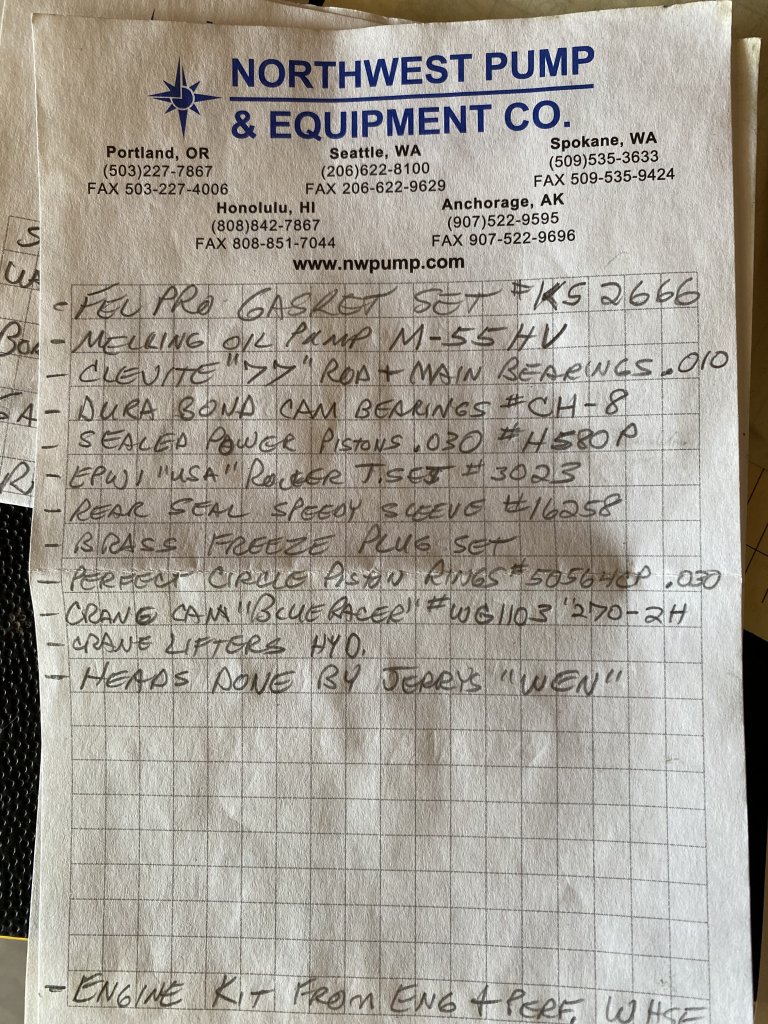 NORTHWEST PUMP
& EQUIPMENT CO.
Portland, OR
(503)227-7867
FAX 503-227-4006
Seattle, WA
(206)622-8100
FAX 206-622-9629
Spokane, WA
(509)535-3633
FAX 509-535-9424
Honolulu, HI
(808)842-7867
FAX 808-851-7044
Anchorage, AK
(907)522-9595
FAX 907-522-9696
www.nwpump.com
- FEL PRO GASKET SET #KS 2666
- MELLING OIL PUMP M-55HV
- CLEVITE "77" ROD + MAIN BEARINGS .010
- DURA BOND CAM BEARINGS #CH-8
- SEALED POWER PISTONS .030 #H580P
- EPWI "USA" ROLLER T.SET #3023
- REAR SEAL SPEEDY SLEEVE #16258
- BRASS FREEZE PLUG SET
- PERFECT CIRCLE PISTON RINGS .030
- CRANE CAM "BLUE RACER" #WG1103 "270-2H
- CRANE LIFTERS HYD.
- HEADS DONE BY JERRYS "WEN"
- ENGINE KIT FROM ENG + PERF. WHSE